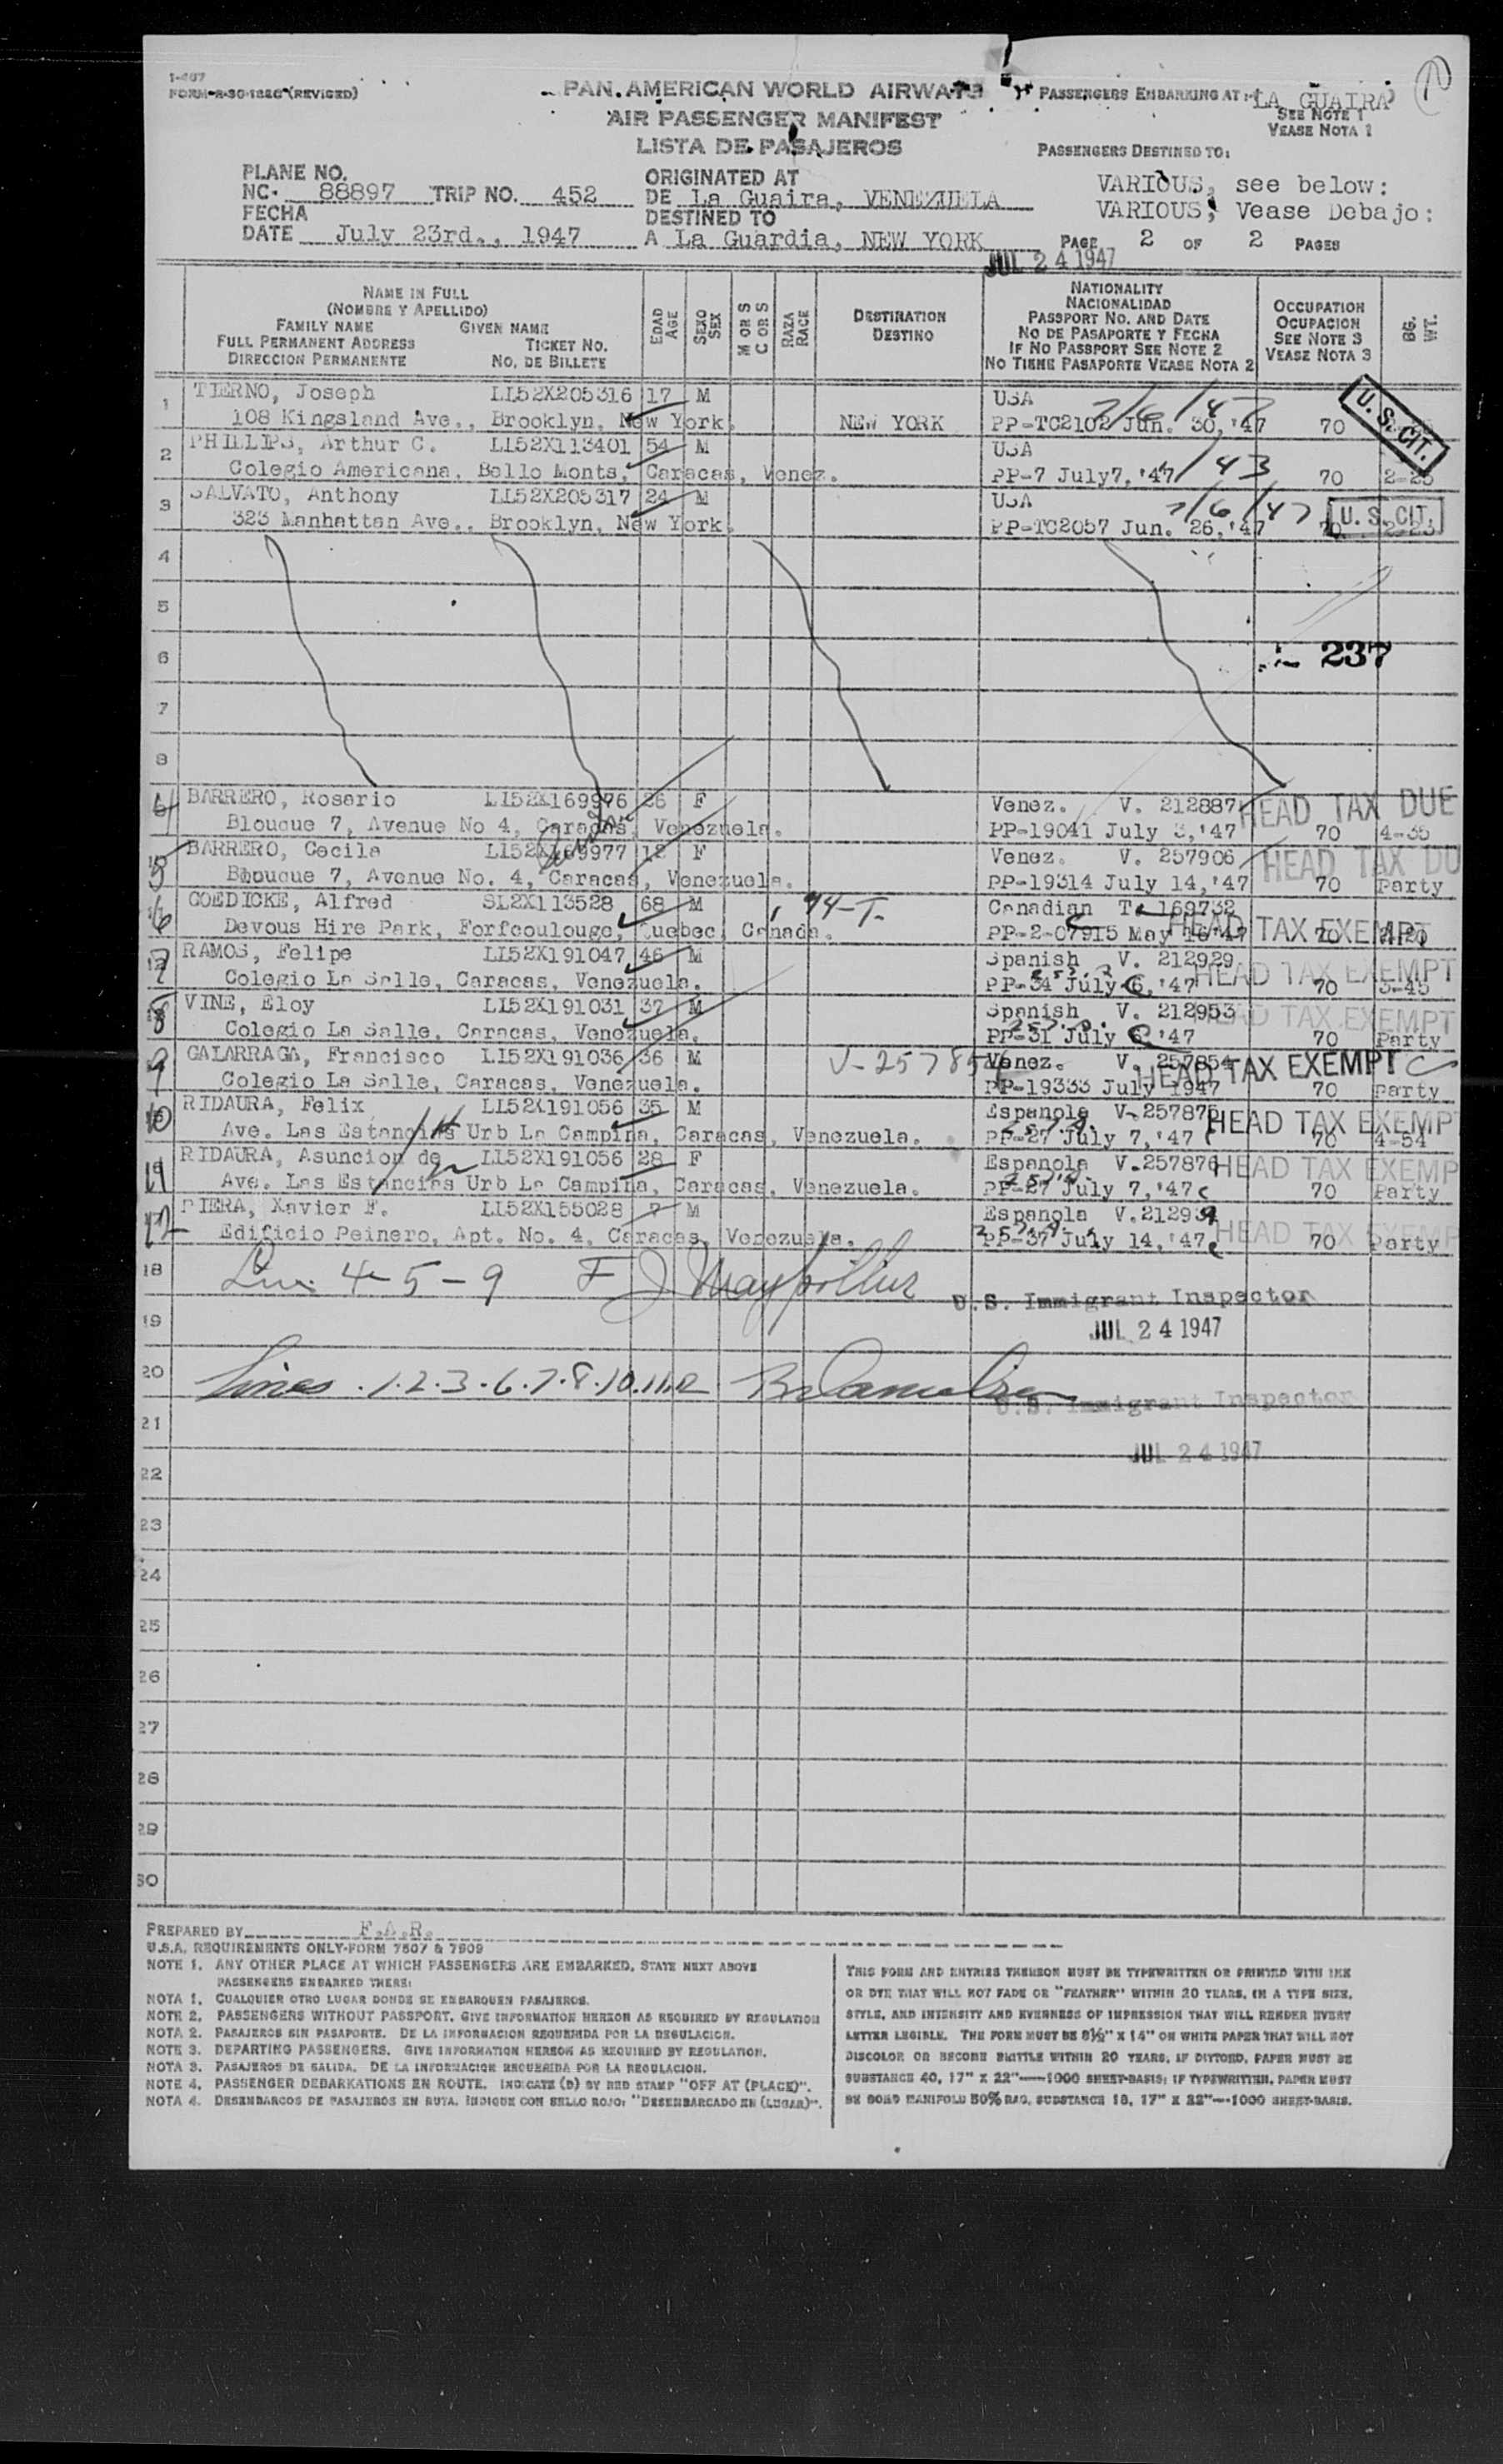 1-407
FORM-R-SG-1226 (REVISED)
PAN AMERICAN WORLD AIRWAYS
AIR PASSENGER MANIFEST
LISTA DE PASAJEROS
PASSENGERS EMBARKING AT: LA GUAIRA
SEE NOTE 1
VEASE NOTA 1
PASSENGERS DESTINED TO:
VARIOUS, see below:
VARIOUS, Vease Debajo:
PLANE NO.
NC- 88897 TRIP NO. 452
FECHA
DATE July 23rd., 1947
ORIGINATED AT
DE La Guaira, VENEZUELA
DESTINED TO
A La Guardia, NEW YORK
PAGE 2 OF 2 PAGES
JUL 24 1947
NAME IN FULL
(NOMBRE Y APELLIDO)
FAMILY NAME GIVEN NAME
FULL PERMANENT ADDRESS TICKET NO.
DIRECCION PERMANENTE NO. DE BILLETE
EDAD
AGE
SEXO
SEX
M OR S
C OR S
RAZA
RACE
DESTINATION
DESTINO
NATIONALITY
NACIONALIDAD
PASSPORT NO. AND DATE
NO DE PASAPORTE Y FECHA
IF NO PASSPORT SEE NOTE 2
NO TIENE PASAPORTE VEASE NOTA 2
OCCUPATION
OCUPACION
SEE NOTE 3
VEASE NOTA 3
BG.
WT.
1 TIERNO, Joseph LI52X205316 17 M USA 7/6/47
108 Kingsland Ave., Brooklyn, New York. NEW YORK PP-TC2102 Jun. 30,'47 70
U.S. CIT.
2 PHILLIPS, Arthur C. LI52X113401 54 M USA
Colegio Americana, Bello Monts, Caracas, Venez. PP-7 July7,'47 /43 70 2-23
3 SALVATO, Anthony LI52X205317 24 M USA 7/6/47
323 Manhattan Ave., Brooklyn, New York. PP-TC2057 Jun. 26,'47 70 2-23
U. S. CIT.
4
5
6
237
7
8
4 BARRERO, Rosario LI52X169976 26 F Venez. V. 212887 HEAD TAX DUE
Blouque 7, Avenue No 4, Caracas, Venezuela. PP-19041 July 3,'47 70 4-35
5 BARRERO, Cecila LI52X169977 12 F Venez. V. 257906 HEAD TAX DU
Blouque 7, Avenue No. 4, Caracas, Venezuela. PP-19314 July 14,'47 70 Party
6 GOEDICKE, Alfred SL2X113528 68 M 94-T. Canadian T. 169732
Devous Hire Park, Forfcoulouge, Quebec, Canada. PP-2-07915 May 16'47 HEAD TAX EXEMPT 70
7 RAMOS, Felipe LI52X191047 46 M Spanish V. 212929
Colegio La Salle, Caracas, Venezuela. PP-34 July 6,'47 HEAD TAX EXEMPT 70 3-45
8 VINE, Eloy LI52X191031 37 M Spanish V. 212953
Colegio La Salle, Caracas, Venezuela. PP-31 July 6 '47 HEAD TAX EXEMPT 70 Party
9 GALARRAGA, Francisco LI52X191036 36 M V-257854 Venez. V. 257854
Colegio La Salle, Caracas, Venezuela. PP-19333 July 1947 HEAD TAX EXEMPT 70 Party
10 RIDAURA, Felix LI52X191056 35 M Espanola V-257875 HEAD TAX EXEMPT
Ave. Las Estancias Urb La Campina, Caracas, Venezuela. PP-27 July 7,'47 70 4-54
11 RIDAURA, Asuncion de LI52X191056 28 F Espanola V.257876 HEAD TAX EXEMP
Ave. Las Estancias Urb La Campina, Caracas, Venezuela. PP-27 July 7,'47 70 Party
12 RIERA, Xavier F. LI52X155028 7 M Espanola V.212934 HEAD TAX EXEMP
Edificio Peinero, Apt. No. 4, Caracas, Venezuela. PP-37 July 14,'47 70 Party
18 4-5-9
U.S. Immigrant Inspector
19 JUL 24 1947
20 Lines .1.2.3.6.7.8.10.11.12
U.S. Immigrant Inspector
21
JUL 24 1947
22
23
24
25
26
27
28
29
30
PREPARED BY F.A.R.
U.S.A. REQUIREMENTS ONLY-FORM 7507 & 7509
NOTE 1. ANY OTHER PLACE AT WHICH PASSENGERS ARE EMBARKED, STATE NEXT ABOVE
PASSENGERS EMBARKED THERE:
NOTA 1. CUALQUIER OTRO LUGAR DONDE SE EMBARQUEN PASAJEROS.
NOTE 2. PASSENGERS WITHOUT PASSPORT. GIVE INFORMATION HEREON AS REQUIRED BY REGULATION
NOTA 2. PASAJEROS SIN PASAPORTE. DE LA INFORMACION REQUERIDA POR LA REGULACION.
NOTE 3. DEPARTING PASSENGERS. GIVE INFORMATION HEREON AS REQUIRED BY REGULATION.
NOTA 3. PASAJEROS DE SALIDA. DE LA INFORMACION REQUERIDA POR LA REGULACION.
NOTE 4. PASSENGER DEBARKATIONS EN ROUTE. INDICATE (D) BY RED STAMP "OFF AT (PLACE)".
NOTA 4. DESEMBARCOS DE PASAJEROS EN RUTA. INDIQUE CON SELLO ROJO: "DESEMBARCADO EN (LUGAR)".
THIS FORM AND ENTRIES THEREON MUST BE TYPEWRITTEN OR PRINTED WITH INK
OR DYE THAT WILL NOT FADE OR "FEATHER" WITHIN 20 YEARS, IN A TYPE SIZE,
STYLE, AND INTENSITY AND EVENNESS OF IMPRESSION THAT WILL RENDER EVERY
LETTER LEGIBLE. THE FORM MUST BE 8½" X 14" ON WHITE PAPER THAT WILL NOT
DISCOLOR OR BECOME BRITTLE WITHIN 20 YEARS. IF DITTOED, PAPER MUST BE
SUBSTANCE 40, 17" X 22"—1000 SHEET-BASIS; IF TYPEWRITTEN, PAPER MUST
BE BOND MANIFOLD 50% RAG, SUBSTANCE 18, 17" X 22"—1000 SHEET-BASIS.